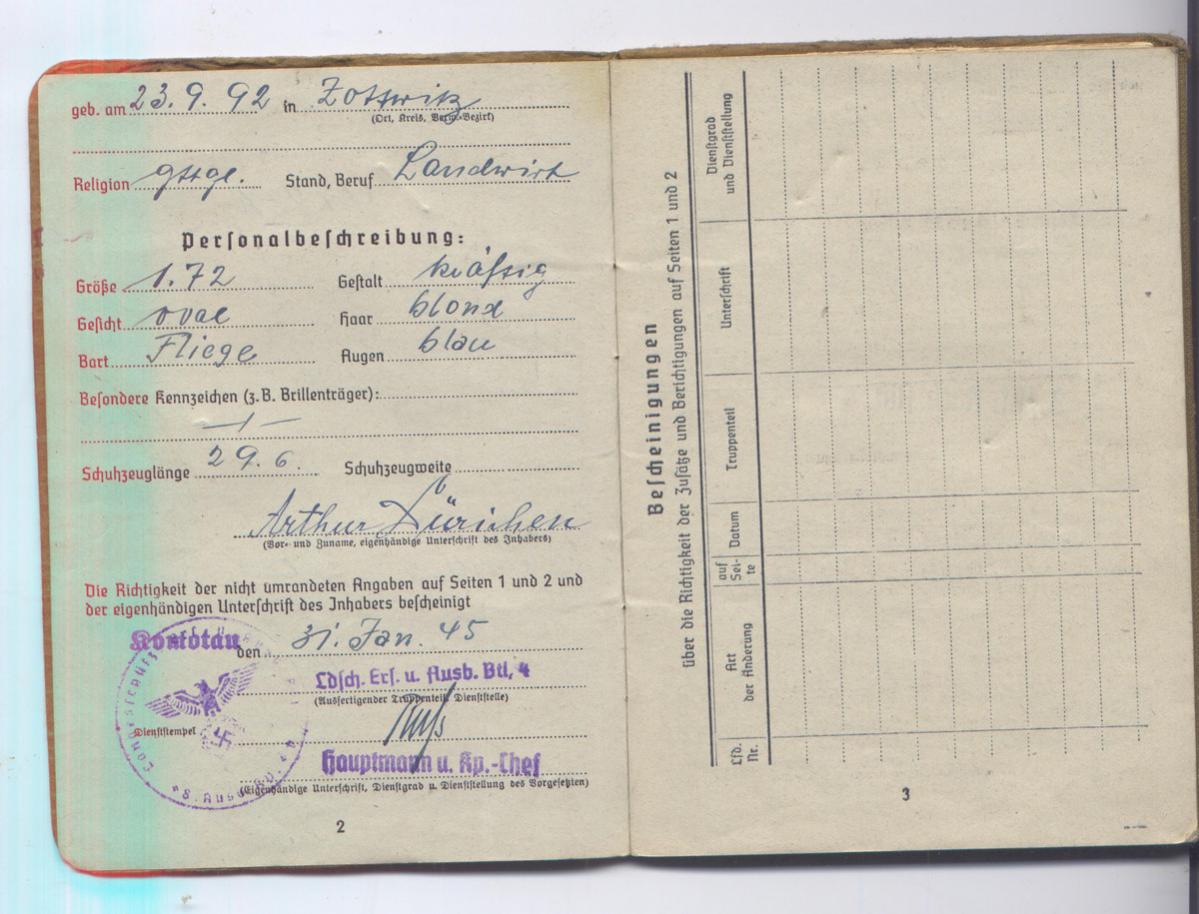 geb. am 23.9.92 in Zottwitz
(Ort, Kreis, Verw.-Bezirk)
Religion gttgl. Stand, Beruf Landwirt
Personalbeschreibung:
Größe 1.72 Gestalt kräftig
Gesicht oval Haar blond
Bart Fliege Augen blau
Besondere Kennzeichen (z.B. Brillenträger):
—/—
Schuhzeuglänge 29.6. Schuhzeugweite
Arthur
(Vor- und Zuname, eigenhändige Unterschrift des Inhabers)
Die Richtigkeit der nicht umrandeten Angaben auf Seiten 1 und 2 und
der eigenhändigen Unterschrift des Inhabers bescheinigt
Komotau den 31. Jan. 45
Ldsch. Ers. u. Ausb. Btl. 4
(Ausfertigender Truppenteil, Dienststelle)
Dienststempel
Hauptmann u. Kp.-Chef
(Eigenhändige Unterschrift, Dienstgrad u. Dienststellung des Vorgesetzten)
2
Bescheinigungen
über die Richtigkeit der Zusätze und Berichtigungen auf Seiten 1 und 2
Lfd.
Nr.
Art
der Änderung
auf
Sei-
te
Datum
Truppenteil
Unterschrift
Dienstgrad
und Dienststellung
3